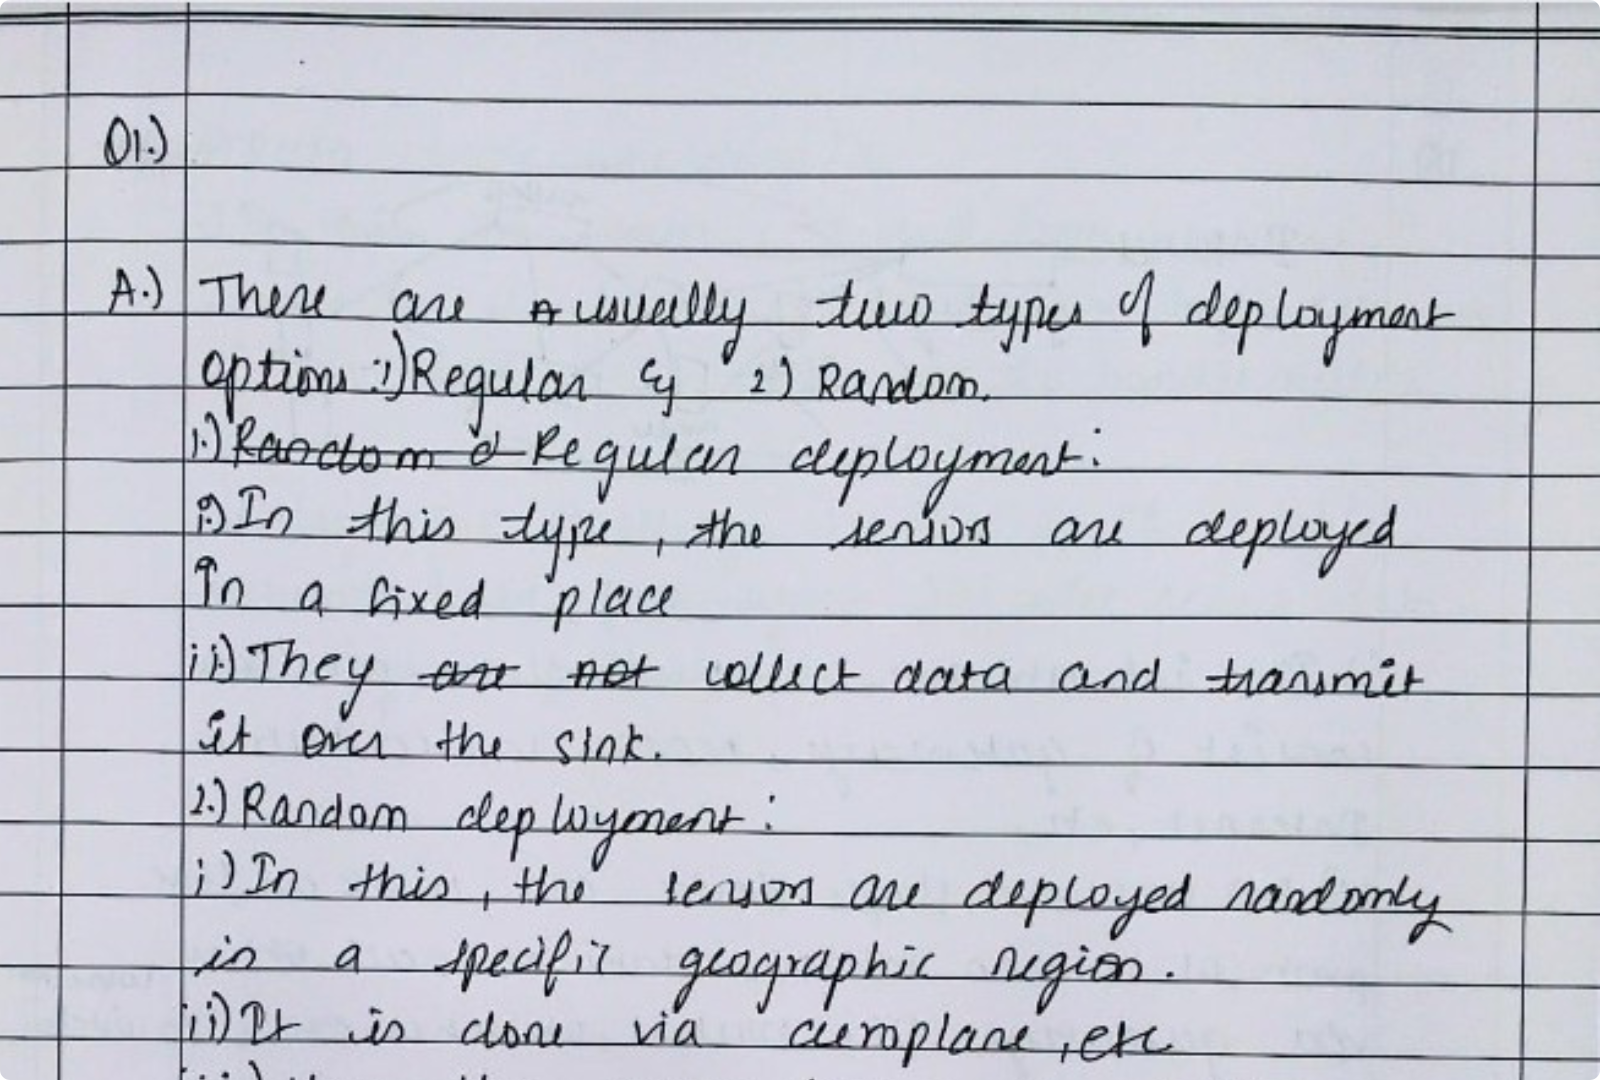 Q1.)
A.) There are usually two types of deployment
options :1) Regular & 2) Random.
1.) Random d Regular deployment:
i) In this type, the sensors are deployed
in a fixed place
ii) They are not collect data and transmit
it over the sink.
2.) Random deployment:
i) In this, the sensors are deployed randomly
in a specific geographic region.
ii) It is done via aeroplane, etc